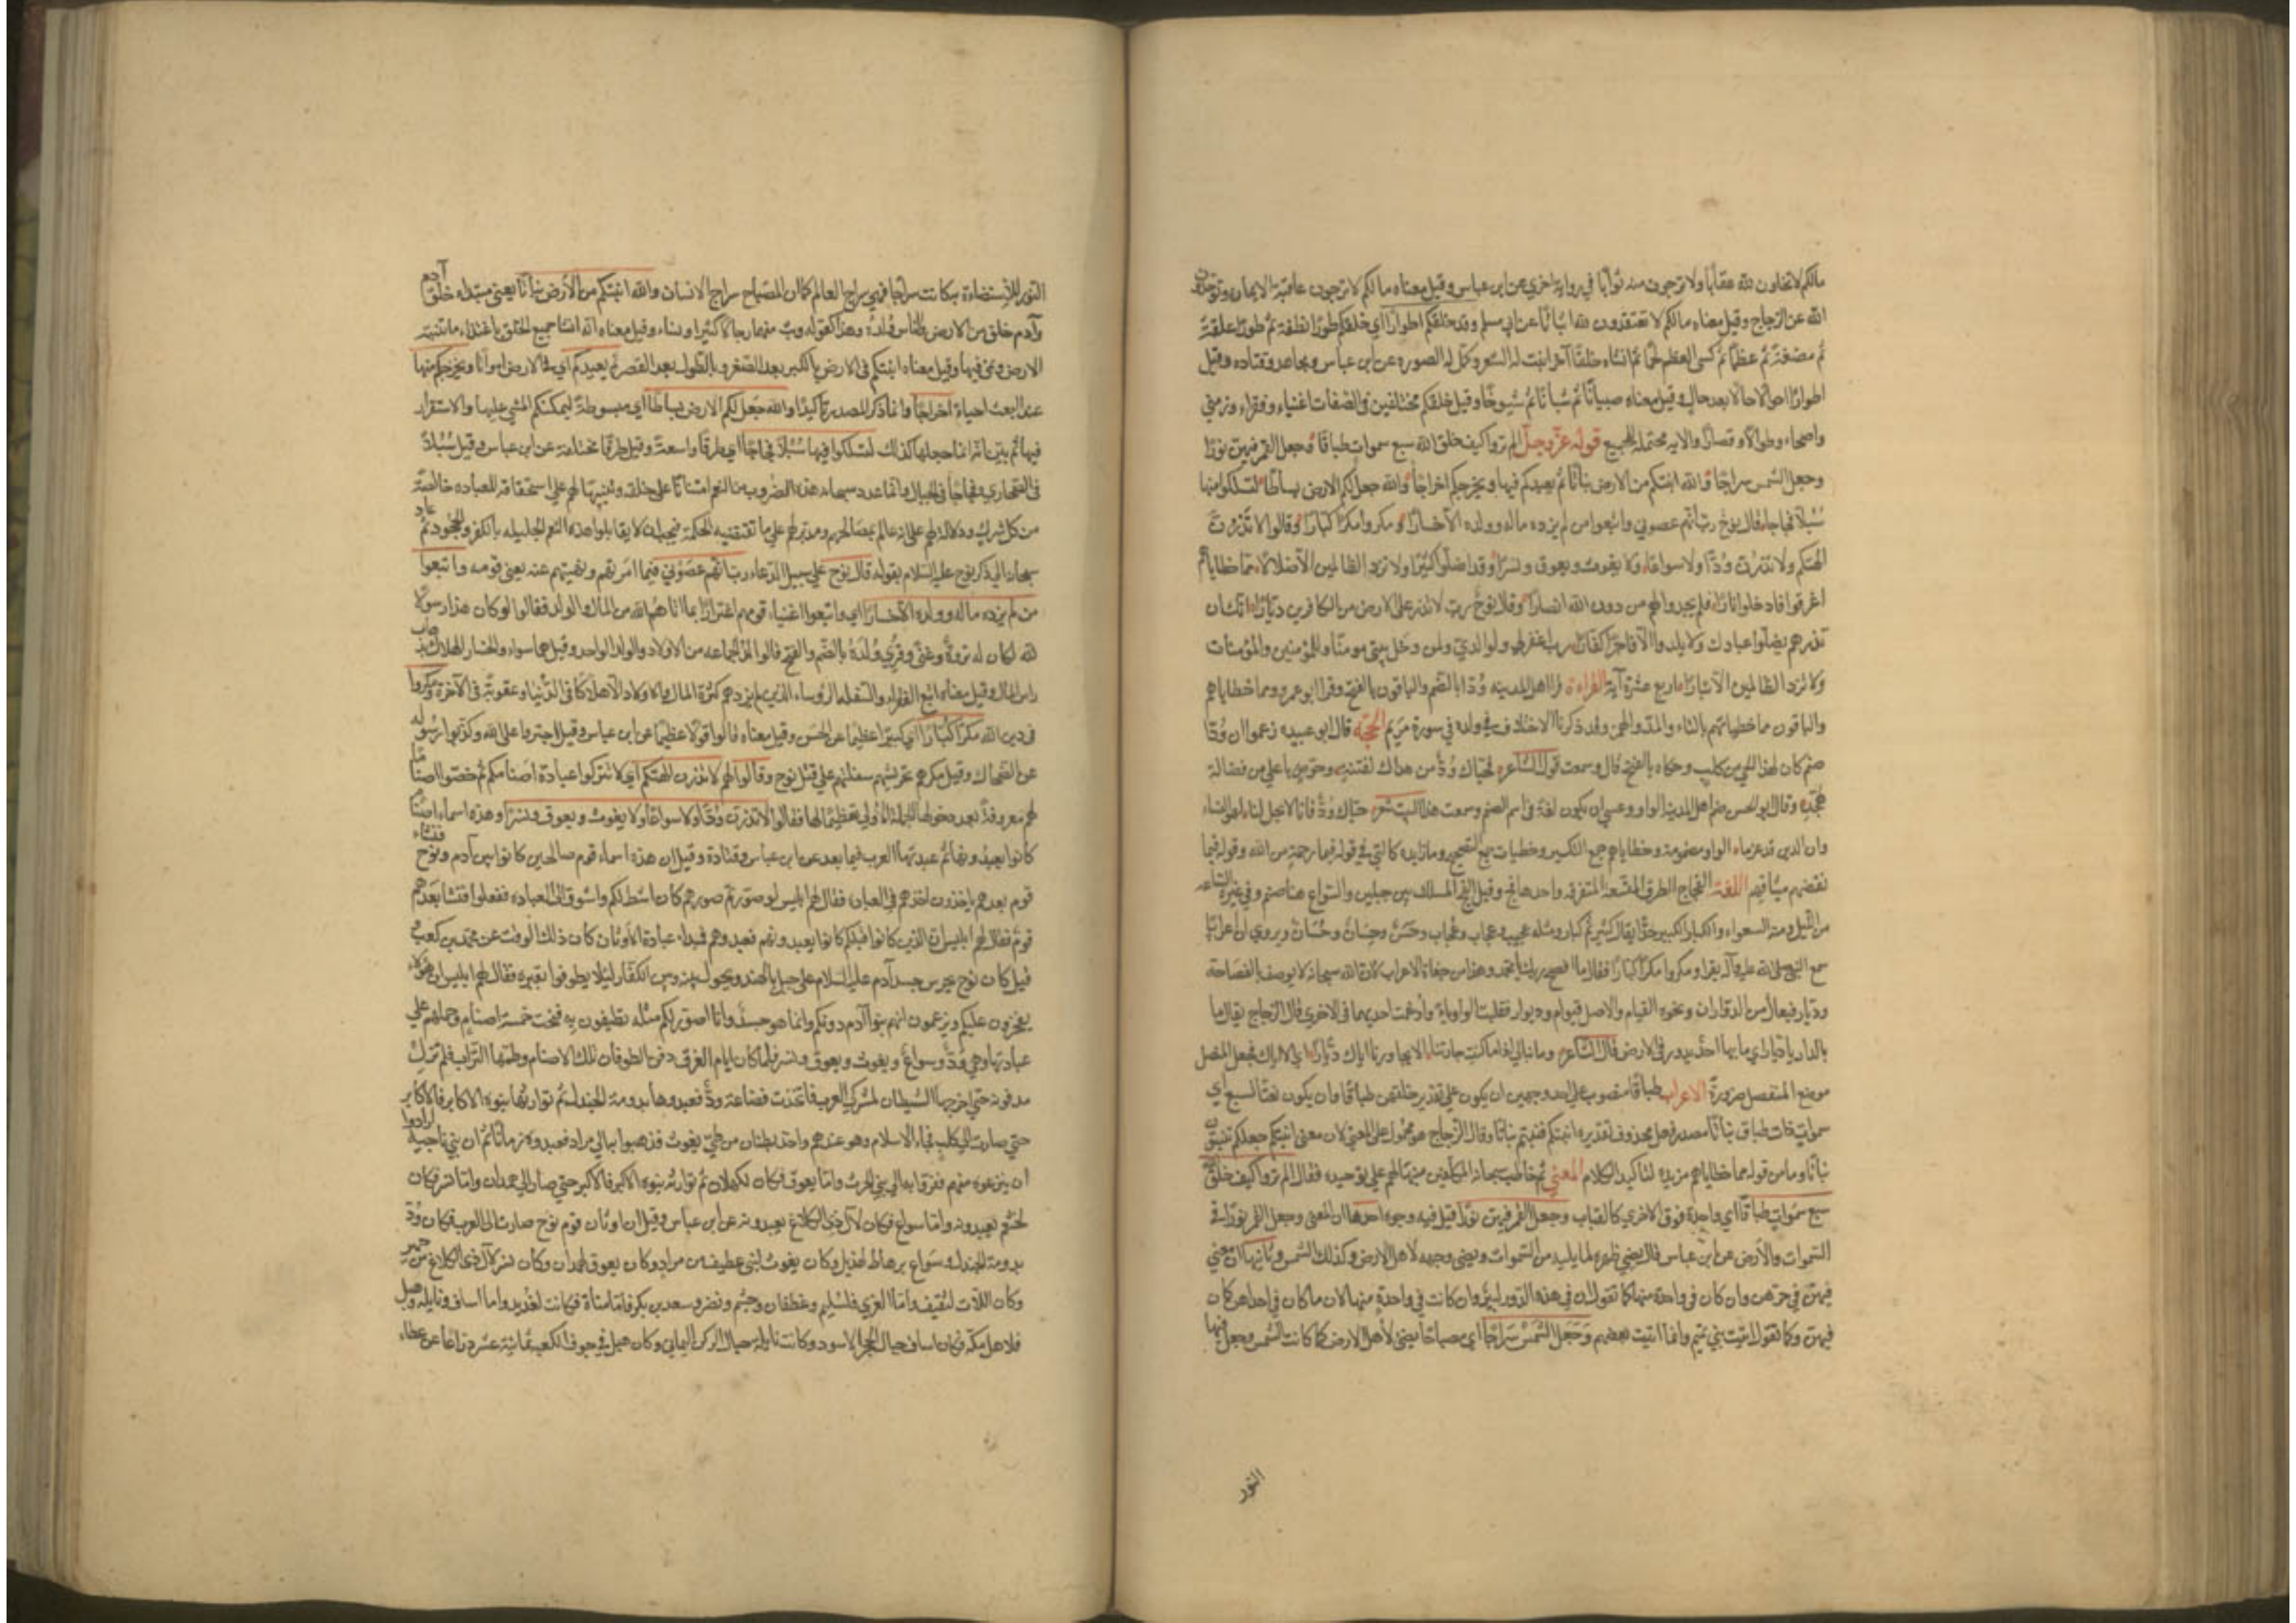 مالكم لا تخافون لله عقابا ولا ترجون منه ثوابا في رواية اخري عن ابن عباس وقيل معناه ما لكم لا ترجون عاقبة الايمان وتوحدون
الله عن الزجاج وقيل معناه مالكم لا تعتقدون لله اثباتا عن ابي مسلم وقد خلقكم اطوارا اي خلقكم طورا نطفة ثم طورا علقة
ثم مضغة ثم عظما ثم كسي العظم لحما ثم انشاه خلقا آخر انبت له الشعر وكمل له الصورة عن ابن عباس ومجاهد وقتاده وقيل
اطوارا احوالا حالا بعد حال وقيل معناه صبيانا ثم شبانا ثم شيوخا وقيل خلقكم مختلفين في الصفات اغنياء وفقراء وزمني
واصحاء وطوالا وقصارا والايه محتملة للجميع قوله عز وجل الم تروا كيف خلق الله سبع سموات طباقا وجعل القمر فيهن نورا
وجعل الشمس سراجا والله انبتكم من الارض نباتا ثم يعيدكم فيها ويخرجكم اخراجا والله جعل لكم الارض بساطا لتسلكوا منها
سبلا فجاجا قال نوح رب انهم عصوني واتبعوا من لم يزده ماله وولده الا خسارا ومكروا مكرا كبارا وقالوا لا تذرن
الهتكم ولا تذرن ودا ولا سواعا ولا يغوث ويعوق ونسرا وقد اضلوا كثيرا ولا تزد الظالمين الا ضلالا مما خطاياهم
اغرقوا فادخلوا نارا فلم يجدوا لهم من دون الله انصارا وقال نوح رب لا تذر علي الارض من الكافرين ديارا انك ان
تذرهم يضلوا عبادك ولا يلدوا الا فاجرا كفارا رب اغفر لي ولوالدي ولمن دخل بيتي مومنا وللمؤمنين والمؤمنات
ولا تزد الظالمين الا تبارا اربع عشرة آية القراءة قرا اهل المدينه ودا بالضم والباقون بالفتح وقرا ابو عمرو مما خطاياهم
والباقون مما خطيئاتهم بالتاء والمد والهمز وقد ذكرنا الاختلاف في ولده في سورة مريم الحجة قال ابو عبيده زعموا ان ودا
صنم كان لهذا الحي من كلب وحكاه بالفتح قال وسمعت قول الشاعر فحياك ود من هداك لفتية وخوص باعلي من فضالة
هجد وقال ابو الحسن ضم اهل المدينة الواو وعسي ان يكون لغة في اسم الصنم وسمعت هذا البيت شعر حياك ود فانا لا يحل لنا لهو النساء
وان الدين قد عزما الواو مضمومة وخطاياهم جمع التكسير وخطيات جمع التصحيح وما زايده كالتي في قوله فبما رحمة من الله وقوله فبما
نقضهم ميثاقهم اللغة الفجاج الطرق المتسعة المتفرقه واحدها فج وقيل الفج المسلك بين جبلين والسواع هنا صنم وفي غيره الساعة
من الليل ومثه السعواء والكبار الكبير جدا يقال كبير ثم كبار ومثله عجيب وعجاب وعجاب وحسن وحسان وحسان وروي ان اعرابيا
سمع النبي صلي الله عليه وآله يقرا ومكروا مكرا كبارا فقال ما افصح ربك يا محمد وهذا من جفاة الاعراب لان الله سبحانه لا يوصف بالفصاحة
وديار فيعال من الدوران ونحوه القيام والاصل قيوام وديوار فقلبت الواو ياء وادغمت احديهما في الاخري قال الزجاج يقال ما
بالدار ديار اي ما بها احد يدور في الارض قال الشاعر وما نبالي اذا ما كنت جارتنا الا يجاورنا الاك ديار اي الا اياك فجعل المتصل
موضع المنفصل ضرورة الاعراب طباقا منصوب علي احد وجهين ان يكون علي تقدير خلقهن طباقا وان يكون نعتا لسبع اي
سموات ذات طباق نباتا مصدر فعل محذوف تقديره انبتكم فنبتم نباتا وقال الزجاج هو محمول علي المعني لان معني انبتكم جعلكم تنبتون
نباتا وما من قوله مما خطاياهم مزيدة لتاكيد الكلام المعني ثم خاطب سبحانه المكلفين منبها لهم علي توحيده فقال الم تروا كيف خلق الله
سبع سموات طباقا اي واحدة فوق الاخري كالقباب وجعل القمر فيهن نورا قيل فيه وجوه احدها ان المعني وجعل القمر نورا في
السموات والارض عن ابن عباس قال يضيء ظهره لما يليه من السموات ويضيء وجهه لاهل الارض وكذلك الشمس وثانيها ان معني
فيهن في حيزهن وان كان في واحدة منها كما تقول ان في هذه الدور لبئرا وان كانت في واحدة منها لان ما كان في احداهن كان
فيهن وكما تقول اتيت بني تميم وانما اتيت بعضهم وجعل الشمس سراجا اي مصباحا يضيء لاهل الارض كما كانت الشمس وجعل فيها
النور
النور للاستضاءة به كانت سراجا فهي سراج العالم كما ان المصباح سراج الانسان والله انبتكم من الارض نباتا يعني مبتداء خلق آدم
وآدم خلق من الارض والناس ولده وهذا كقوله وبث منهما رجالا كثيرا ونساء وقيل معناه انه انشا جميع الخلق باغتذاء ما تنبته
الارض ونمي فيها وقيل معناه انبتكم في الارض بالكبر بعد الصغر وبالطول بعد القصر ثم يعيدكم اي في الارض امواتا ويخرجكم منها
عند البعث احياء اخراجا وانما ذكر المصدر تاكيدا والله جعل لكم الارض بساطا اي مبسوطة ليمكنكم المشي عليها والاستقرار
فيها ثم بين انه انما جعلها كذلك لتسلكوا فيها سبلا فجاجا اي طرقا واسعة وقيل طرقا مختلفة عن ابن عباس وقيل سبلا
في الصحاري وفجاجا في الجبال وانما عدد سبحانه هذه الضروب من النعم امتنانا علي خلقه وتنبيها لهم علي استحقاقه للعباده خالصة
من كل شرك ودلالة لهم علي انه عالم بمصالحهم ومدبر لهم علي ما تقتضيه الحكمة فيجب ان لا يقابلوا هذه النعم الجليله بالكفر والجحود ثم عاد
سبحانه الي ذكر نوح عليه السلام بقوله قال نوح علي سبيل الدعاء رب انهم عصوني فيما امرتهم ونهيتهم عنه يعني قومه واتبعوا
من لم يزده ماله وولده الا خسارا اي واتبعوا اغنياء قومهم اغترارا بما اتاهم الله من المال والولد فقالوا لو كان هذا رسولا
لله لكان له ثروة وغني وقري وولده بالضم والفتح قالوا الولد الجماعه من الاولاد والولد الواحد وقيل هما سواء والخسار الهلاك بذهاب
راس المال وقيل معناه اتبع الفقراء والسفله الرؤساء الذين لم يزدهم كثرة المال والاولاد الا هلاكا في الدنيا وعقوبة في الآخرة ومكروا
في دين الله مكرا كبارا اي كبيرا عظيما عن الحسن وقيل معناه قالوا قولا عظيما عن ابن عباس وقيل اجتروا علي الله وكذبوا رسوله
عن الضحاك وقيل مكرهم تحريشهم سفلتهم علي قتل نوح وقالوا لهم لا تذرن الهتكم اي لا تتركوا عبادة اصنامكم ثم خصوا اصناما
لهم معروفة بعد دخولها في الجملة الاولي تعظيما لها فقالوا لا تذرن ودا ولا سواعا ولا يغوث ويعوق ونسرا وهذه اسماء اصنام
كانوا يعبدونها ثم عبدتها العرب فيما بعد عن ابن عباس وقتادة وقيل ان هذه اسماء قوم صالحين كانوا بين آدم ونوح فنشاء
قوم بعدهم ياخذون اخذهم في العبادة فقال لهم ابليس لو صورتم صورهم كان انشط لكم واشوق الي العبادة ففعلوا فنشا بعدهم
قوم فقال لهم ابليس ان الذين كانوا قبلكم كانوا يعبدونهم فعبدوهم فمبداء عبادة الاوثان كان ذلك الوقت عن محمد بن كعب
قيل كان نوح يحرس جسد آدم عليه السلام علي جبل بالهند ويحول بينه وبين الكفار لئلا يطوفوا بقبره فقال لهم ابليس ان هؤلاء
يفخرون عليكم ويزعمون انهم بنوا آدم دونكم وانما هو جسد وانا اصور لكم مثله تطيفون به فنحت خمسة اصنام وحملهم علي
عبادتها وهي ود وسواع ويغوث ويعوق ونسر فلما كان ايام الغرق دفن الطوفان تلك الاصنام وطمها التراب فلم تزل
مدفونه حتي اخرجها الشيطان لمشركي العرب فاتخذت قضاعة ودا فعبدوها بدومة الجندل ثم توارثها بنوه الاكابر فالاكابر
حتي صارت الي كلب فجاء الاسلام وهو عندهم واخذ بطنان من طي يغوث فذهبوا به الي مراد فعبدوه زمانا ثم ان بني ناجيه ارادوا
ان ينزعوه منهم ففروا به الي بني الحرث واما يعوق فكان لكهلان ثم توارثه بنوه الاكبر فالاكبر حتي صار الي همدان واما نسر فكان
لخثعم يعبدونه واما سواع فكان لآل ذي الكلاع يعبدونه عن ابن عباس وقيل ان اوثان قوم نوح صارت الي العرب فكان ود
بدومة الجندل وسواع برهاط لهذيل وكان يغوث لبني غطيف من مراد وكان يعوق لهمدان وكان نسر لآل ذي الكلاع من حمير
وكان اللات لثقيف واما العزي فلسليم وغطفان وجشم ونضر وسعد بن بكر واما مناة فكانت لقديد واما اساف ونايلة وهبل
فلاهل مكة فكان اساف حيال الحجر الاسود وكانت نايلة حيال الركن اليماني وكان هبل في جوف الكعبه ثمانية عشر ذراعا عن عطاء